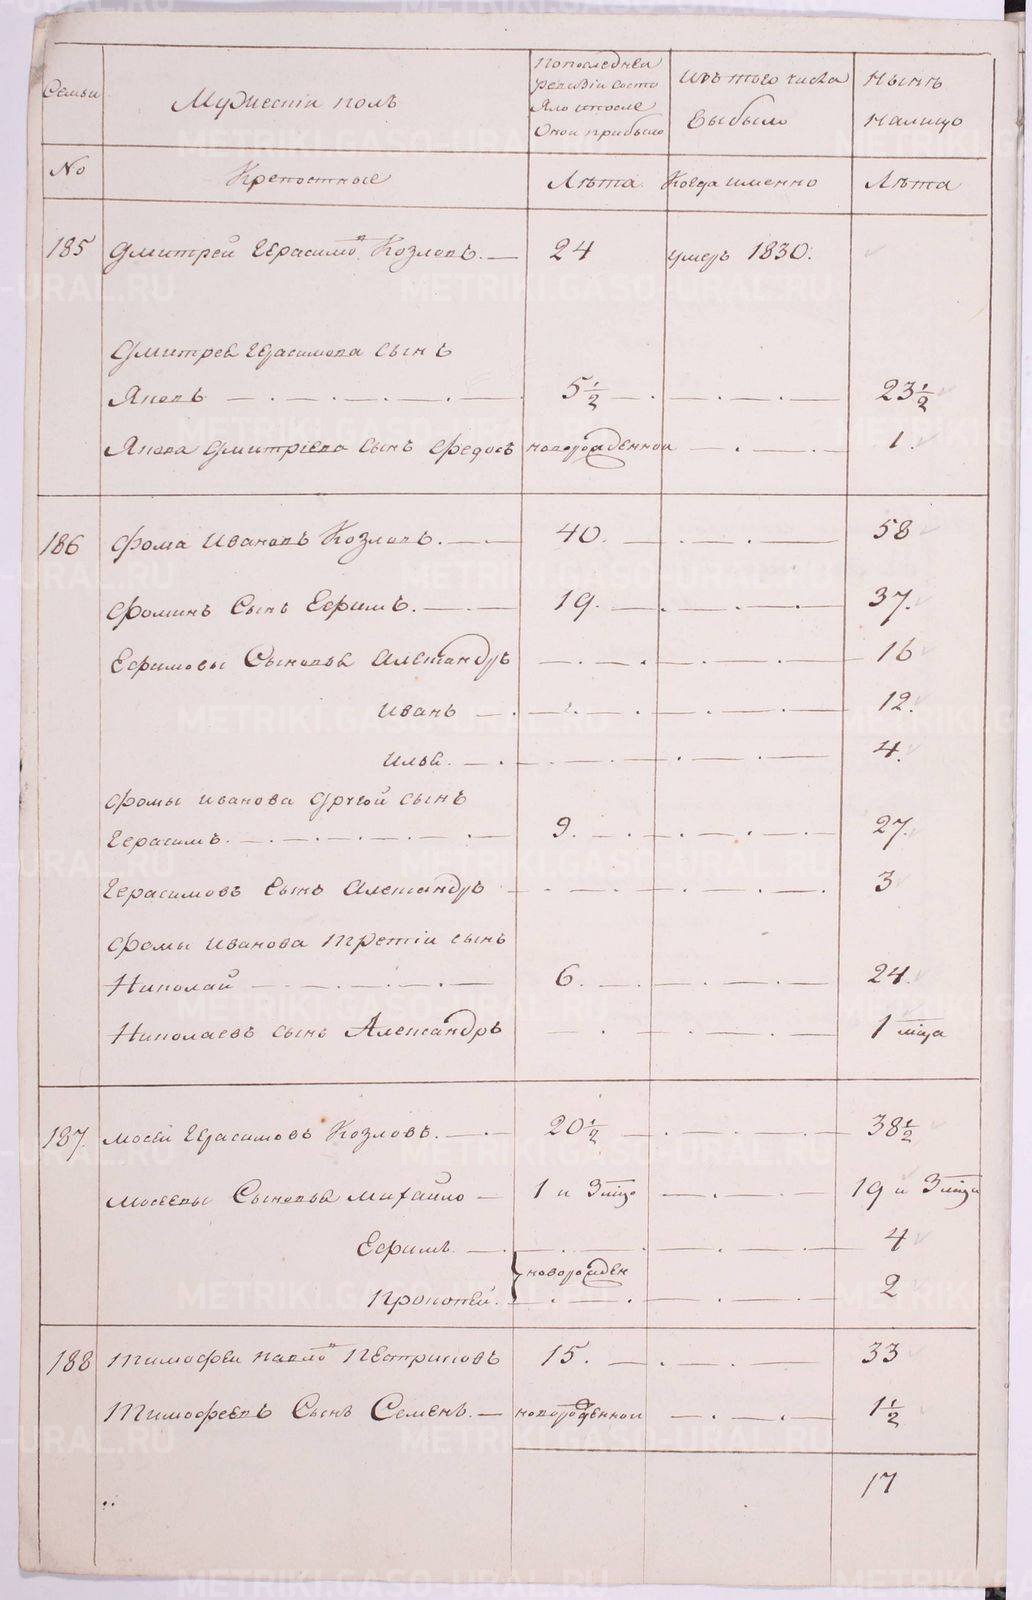 Семьи
Мужескій полъ
По последней
ревизіи состо
яло и после
Оной прибыло
Изъ того числа
Выбыло
Нынѣ
Налицо
No
Крепостные
Лѣта
Когда именно
Лѣта
185 Дмитрей Герасимовъ Козловъ. 24 умеръ 1830.
Дмитрея Герасимова сынъ
Яковъ 5 1/2 23 1/2
Якова Дмитріева сынъ Федосъ новорожденной 1.
186 Фома Ивановъ Козловъ. 40. 58
Фоминъ Сынъ Ефимъ. 19. 37.
Ефимовы Сыновья Александръ 16
Иванъ 12.
Илья. 4.
Фомы Иванова другой сынъ
Герасимъ. 9. 27.
Герасимовъ Сынъ Александръ 3
Фомы Иванова третіи сынъ
Николай 6. 24.
Николаевъ сынъ Александръ 1 мца
187. Мосей Герасимовъ Козловъ. 20 1/2 38 1/2
Мосеевы Сыновья Михайло 1 и 3 мца 19 и 3 мца
Ефимъ. 4
новорожден
Прокопей. 2
188 Тимофеи Павловъ Пестриковъ 15. 33
Тимофеевъ Сынъ Семенъ. новорожденной 1 1/2
17
METRIKI.GASO-URAL.RU